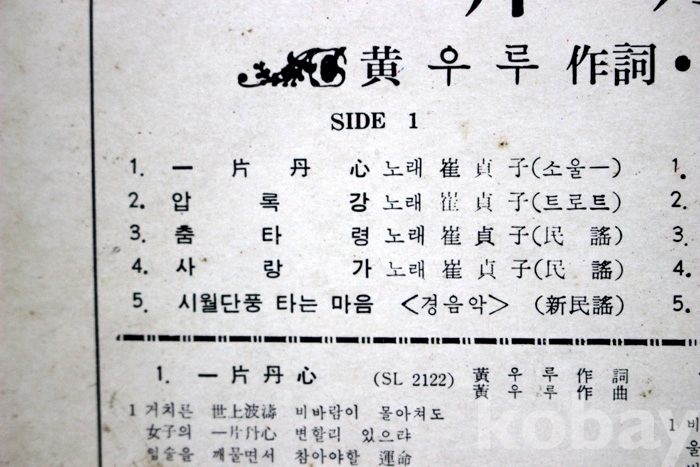 黄우루 作詞·
SIDE 1
1. 一片丹心 노래 崔貞子(소울一)
2. 압록강 노래 崔貞子(트로트)
3. 춤타령 노래 崔貞子(民謠)
4. 사랑가 노래 崔貞子(民謠)
5. 시월단풍 타는 마음 <경음악> (新民謠)
1.
2.
3.
4.
5.
1. 一片丹心 (SL 2122) 黃우루作詞
黃우루作曲
1 거치른 世上波濤 비바람이 몰아쳐도
女子의 一片丹心 변할리 있으랴
입술을 깨물면서 참아야할 運命
1 비
울
kobay